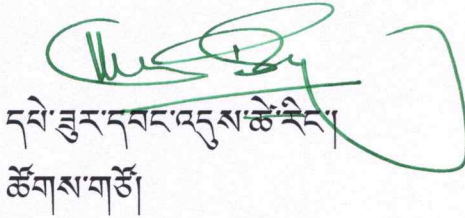 དཔེ་ཟུར་དབང་འདུས་ཚེ་རིང་།
ཚོགས་གཙོ།